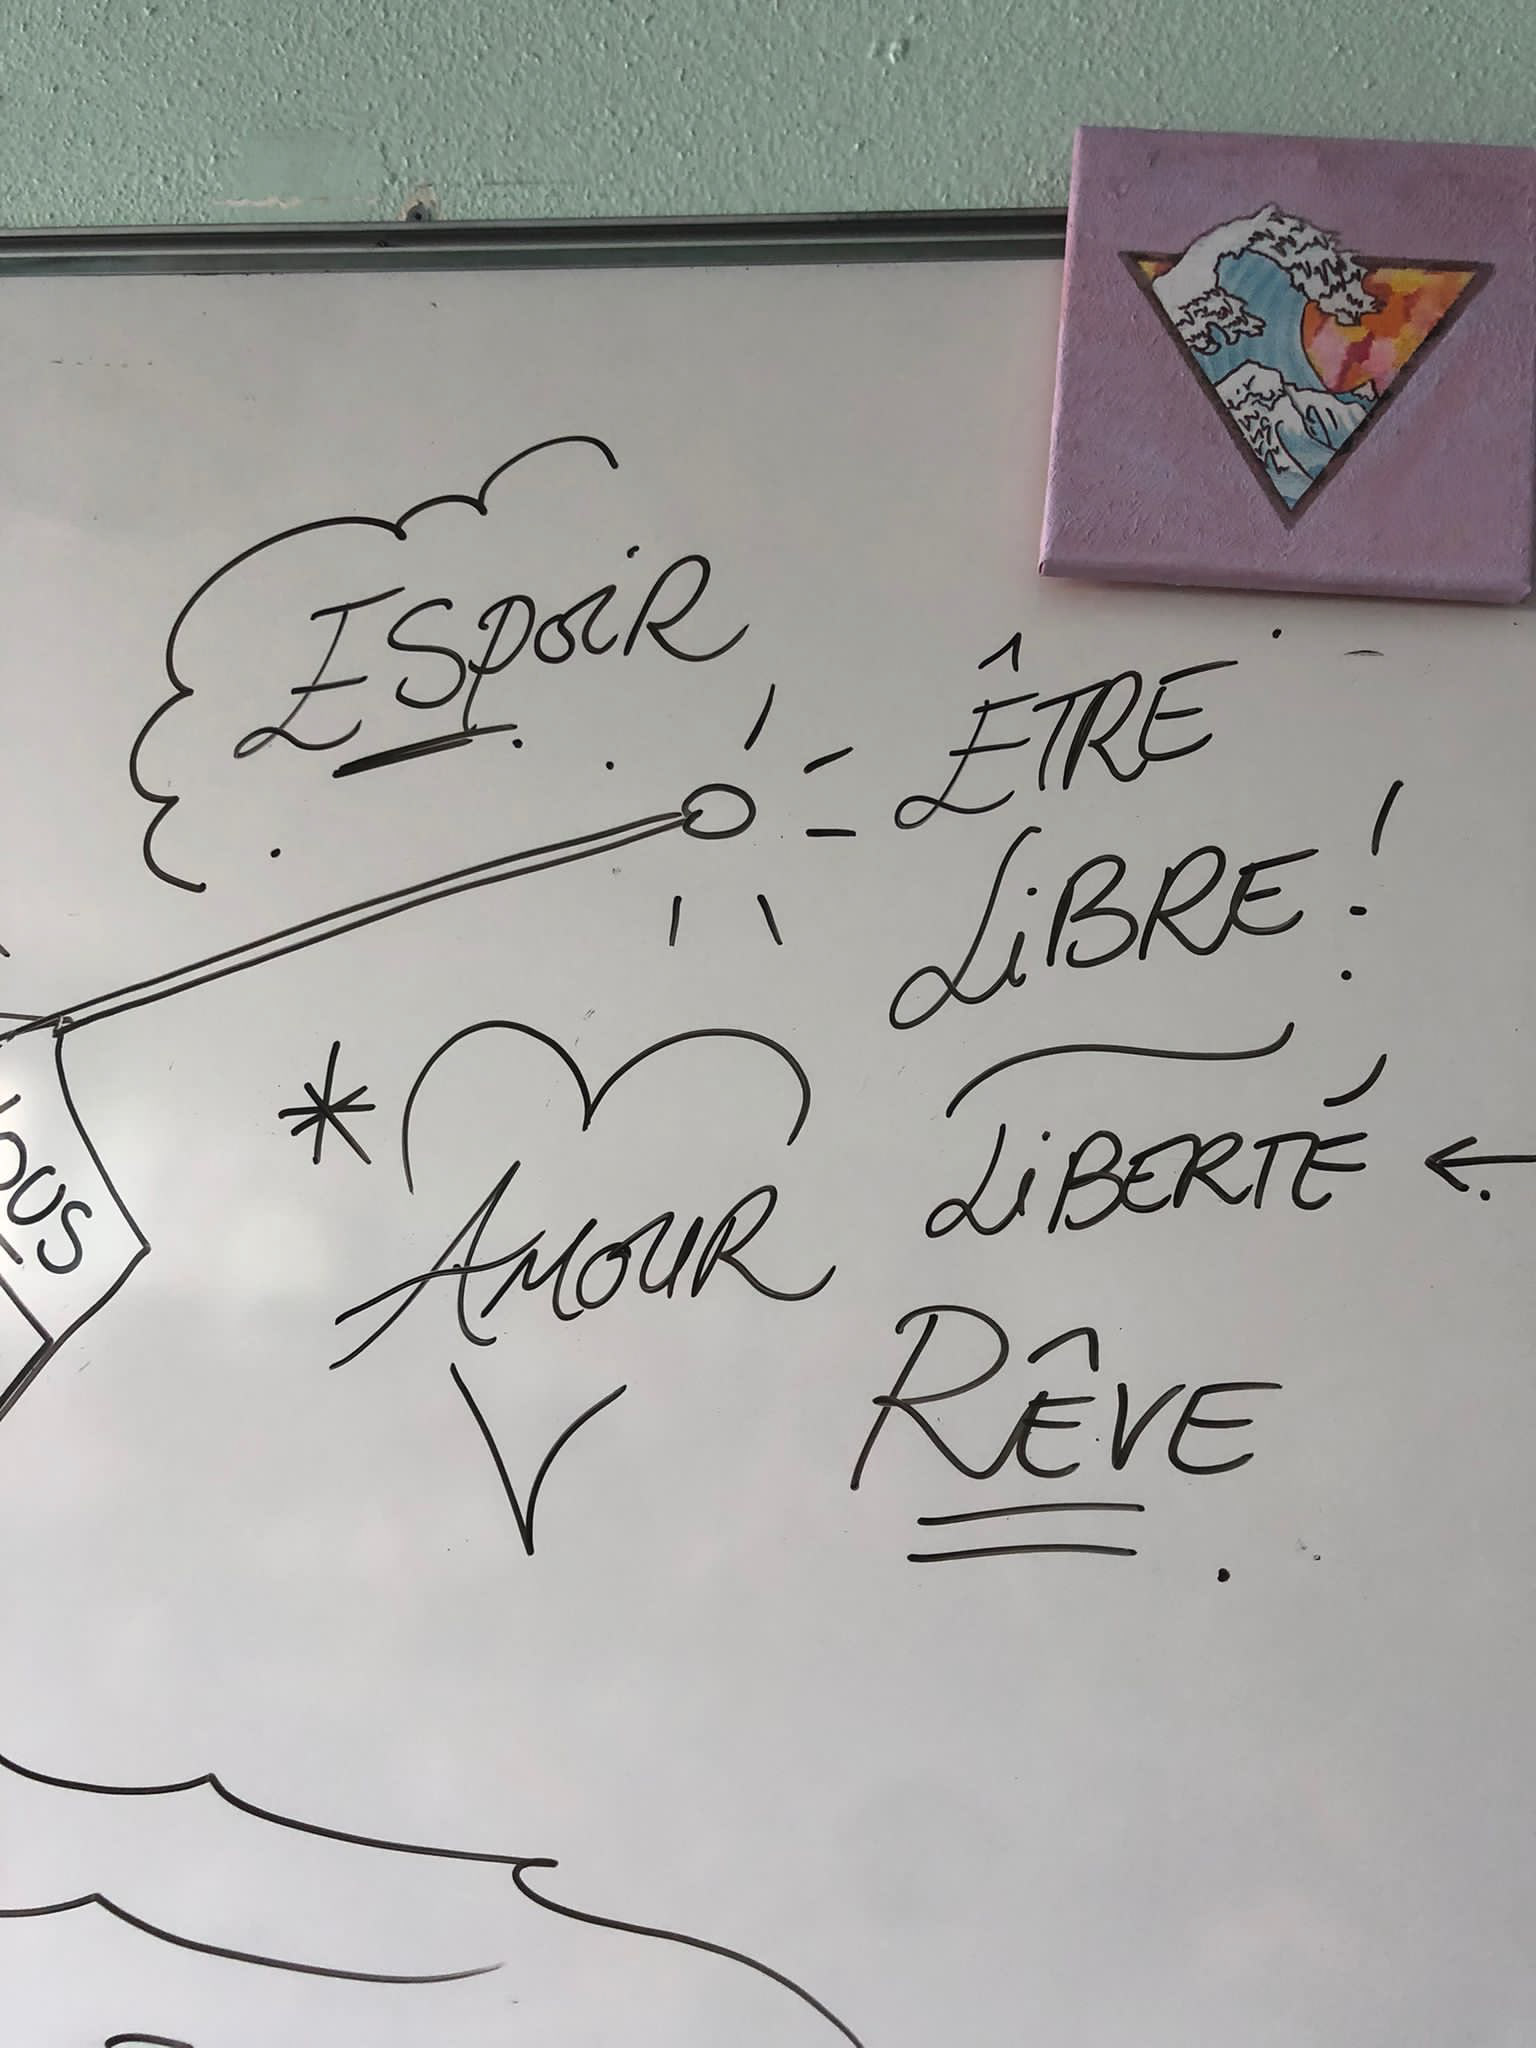 ESPOIR
ÊTRE
LIBRE!
LIBERTÉ
AMOUR
RÊVE